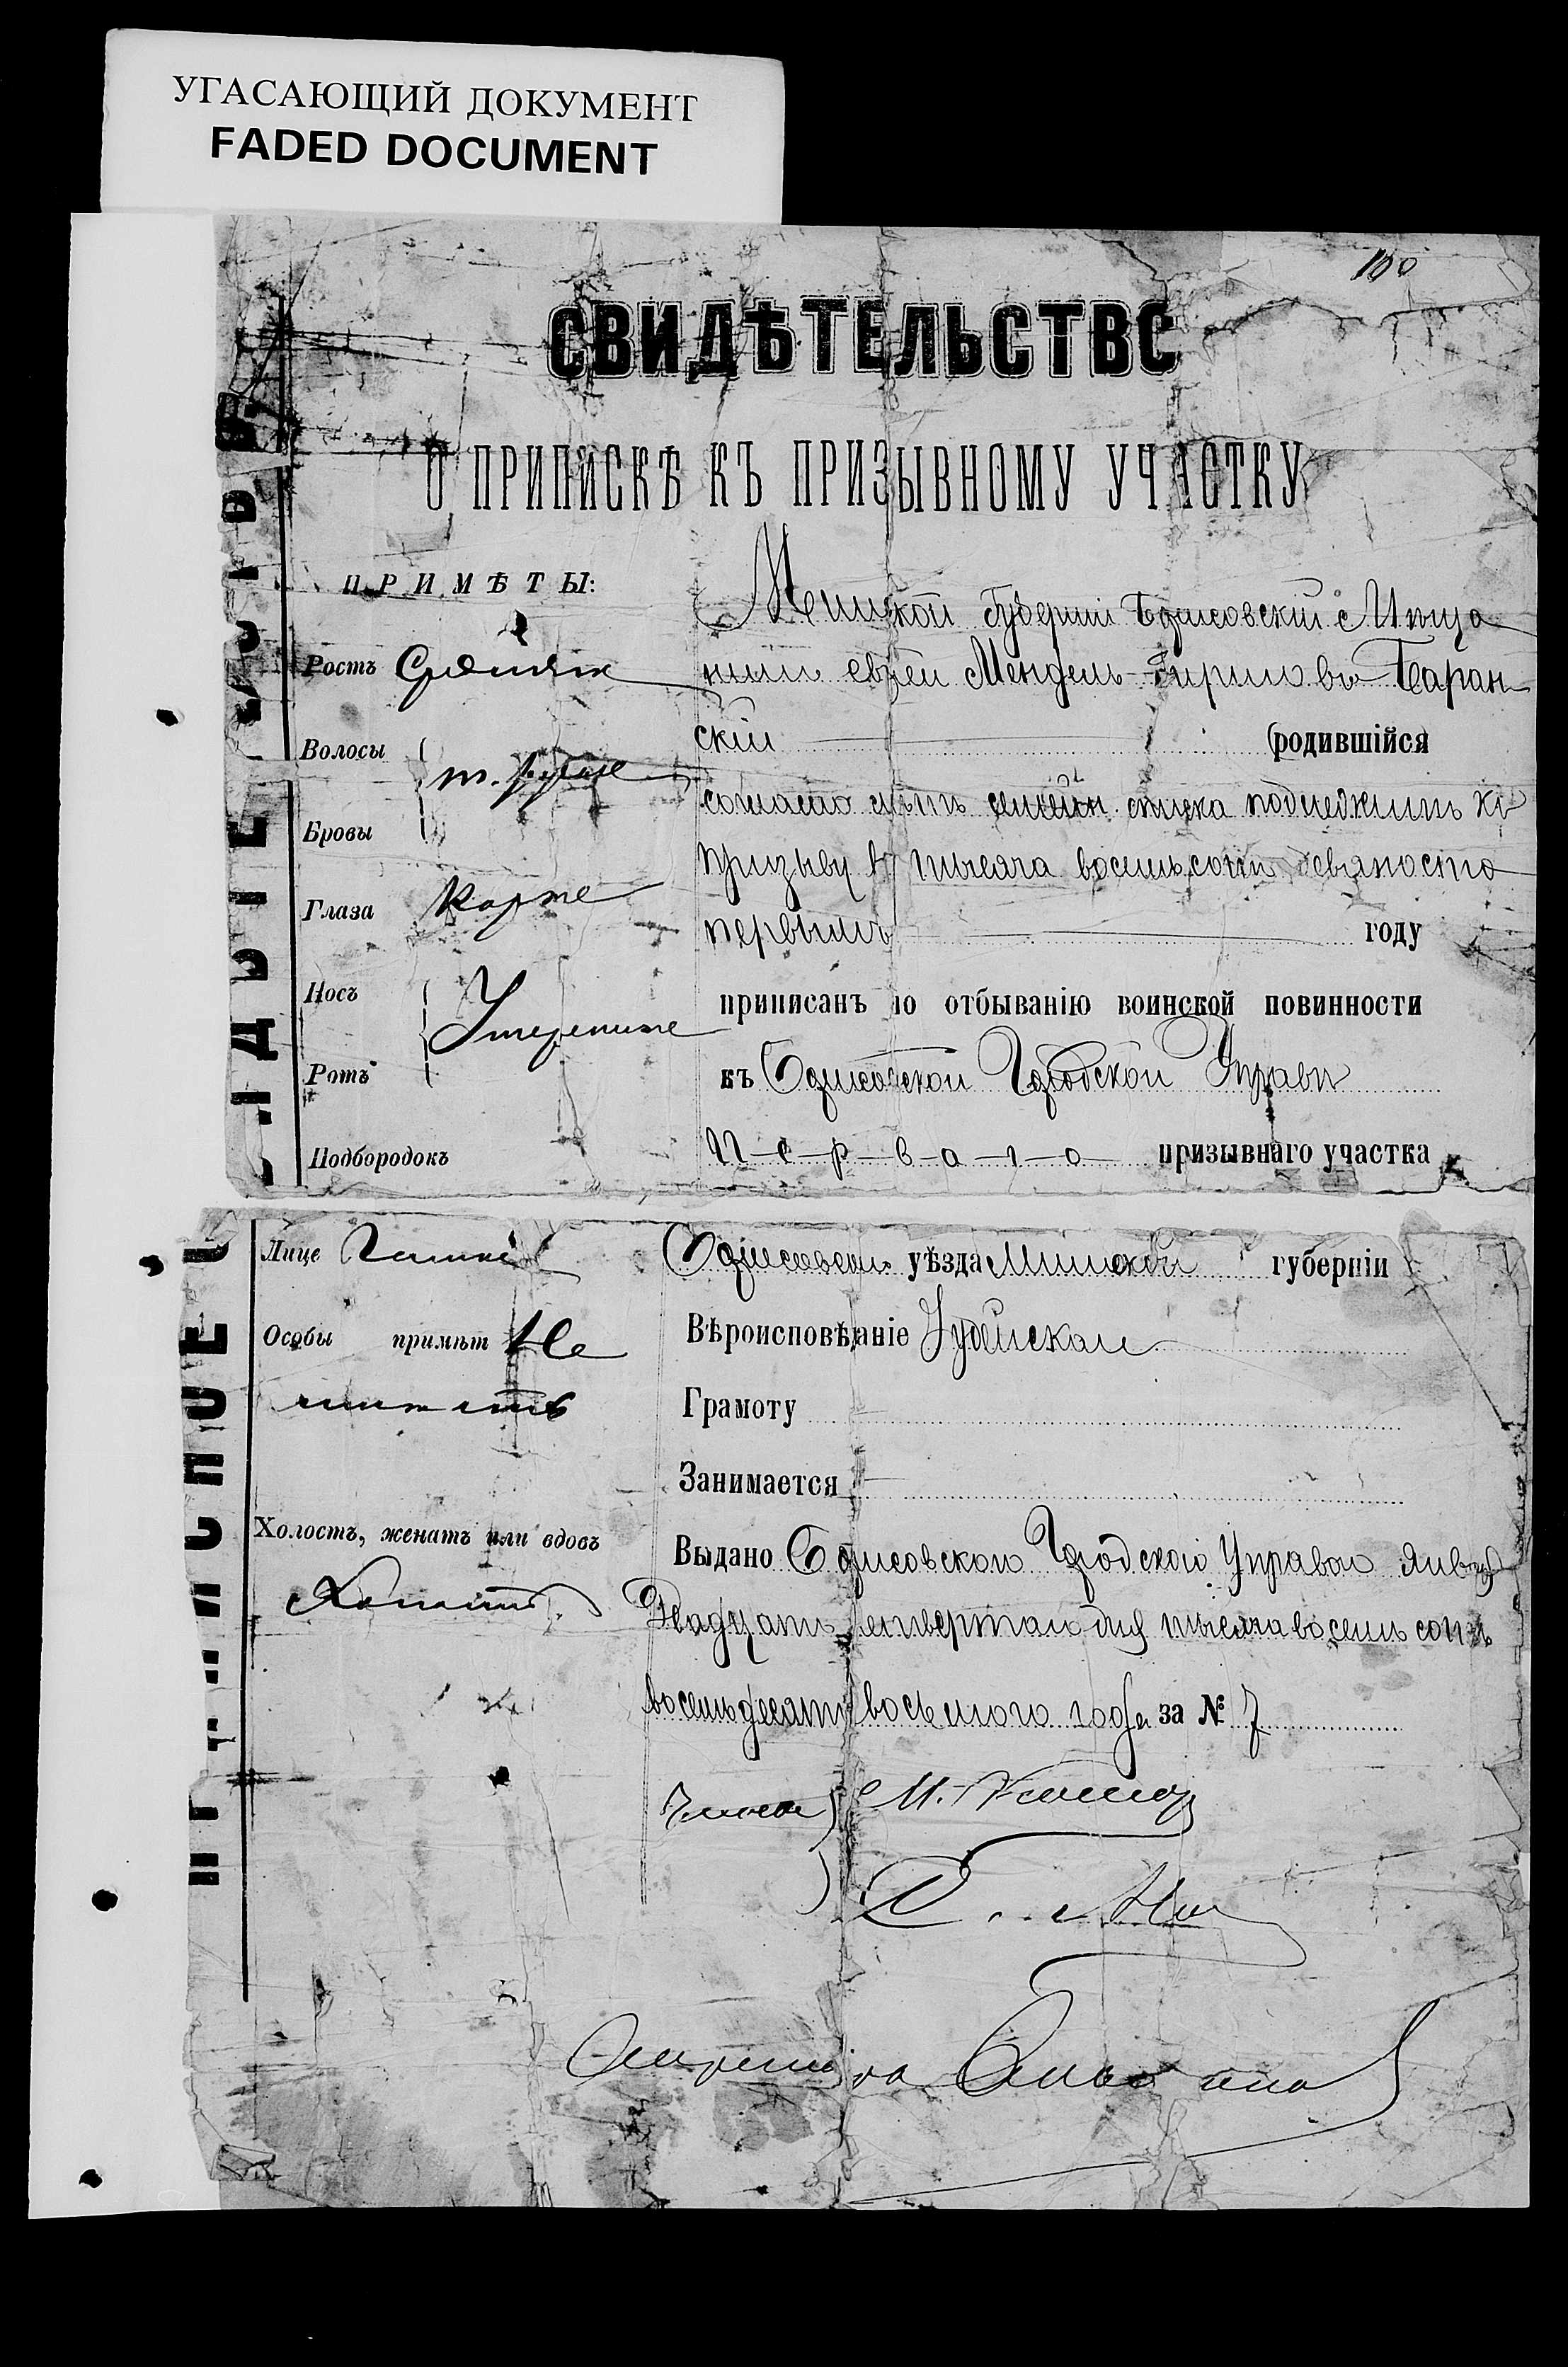 УГАСАЮЩИЙ ДОКУМЕНТ
FADED DOCUMENT
100
СВИДѢТЕЛЬСТВО
О ПРИПИСКѢ КЪ ПРИЗЫВНОМУ УЧАСТКУ
ПРИМѢТЫ:
Ростъ Средній
Волосы
т. русые
Бровы
Глаза Каріе
Носъ
Умеренные
Ротъ
Подбородокъ
Минской Губерніи Борисовскій Мѣща
нинъ еврей Мендель Гиршовъ Баран
скій (родившійся
согласно лѣтъ семейн. списка подлежитъ къ
призыву въ тысяча восемьсотъ девяносто
первымъ году
приписанъ по отбыванію воинской повинности
къ Борисовской Городской Управѣ
П-е-р-в-а-г-о призывнаго участка
Лице Чистое
Особы примѣт Не
имѣетъ
Холостъ, женатъ или вдовъ
Холостъ.
Борисовскаго уѣзда Минской губерніи
Вѣроисповѣданіе Іудейское
Грамоту
Занимается
Выдано Борисовскою Городскою Управою Января
Двадцать четвертаго дня тысяча восемь сотъ
восемьдесятъ восьмого года за № 7
Члены М.
Секретарь